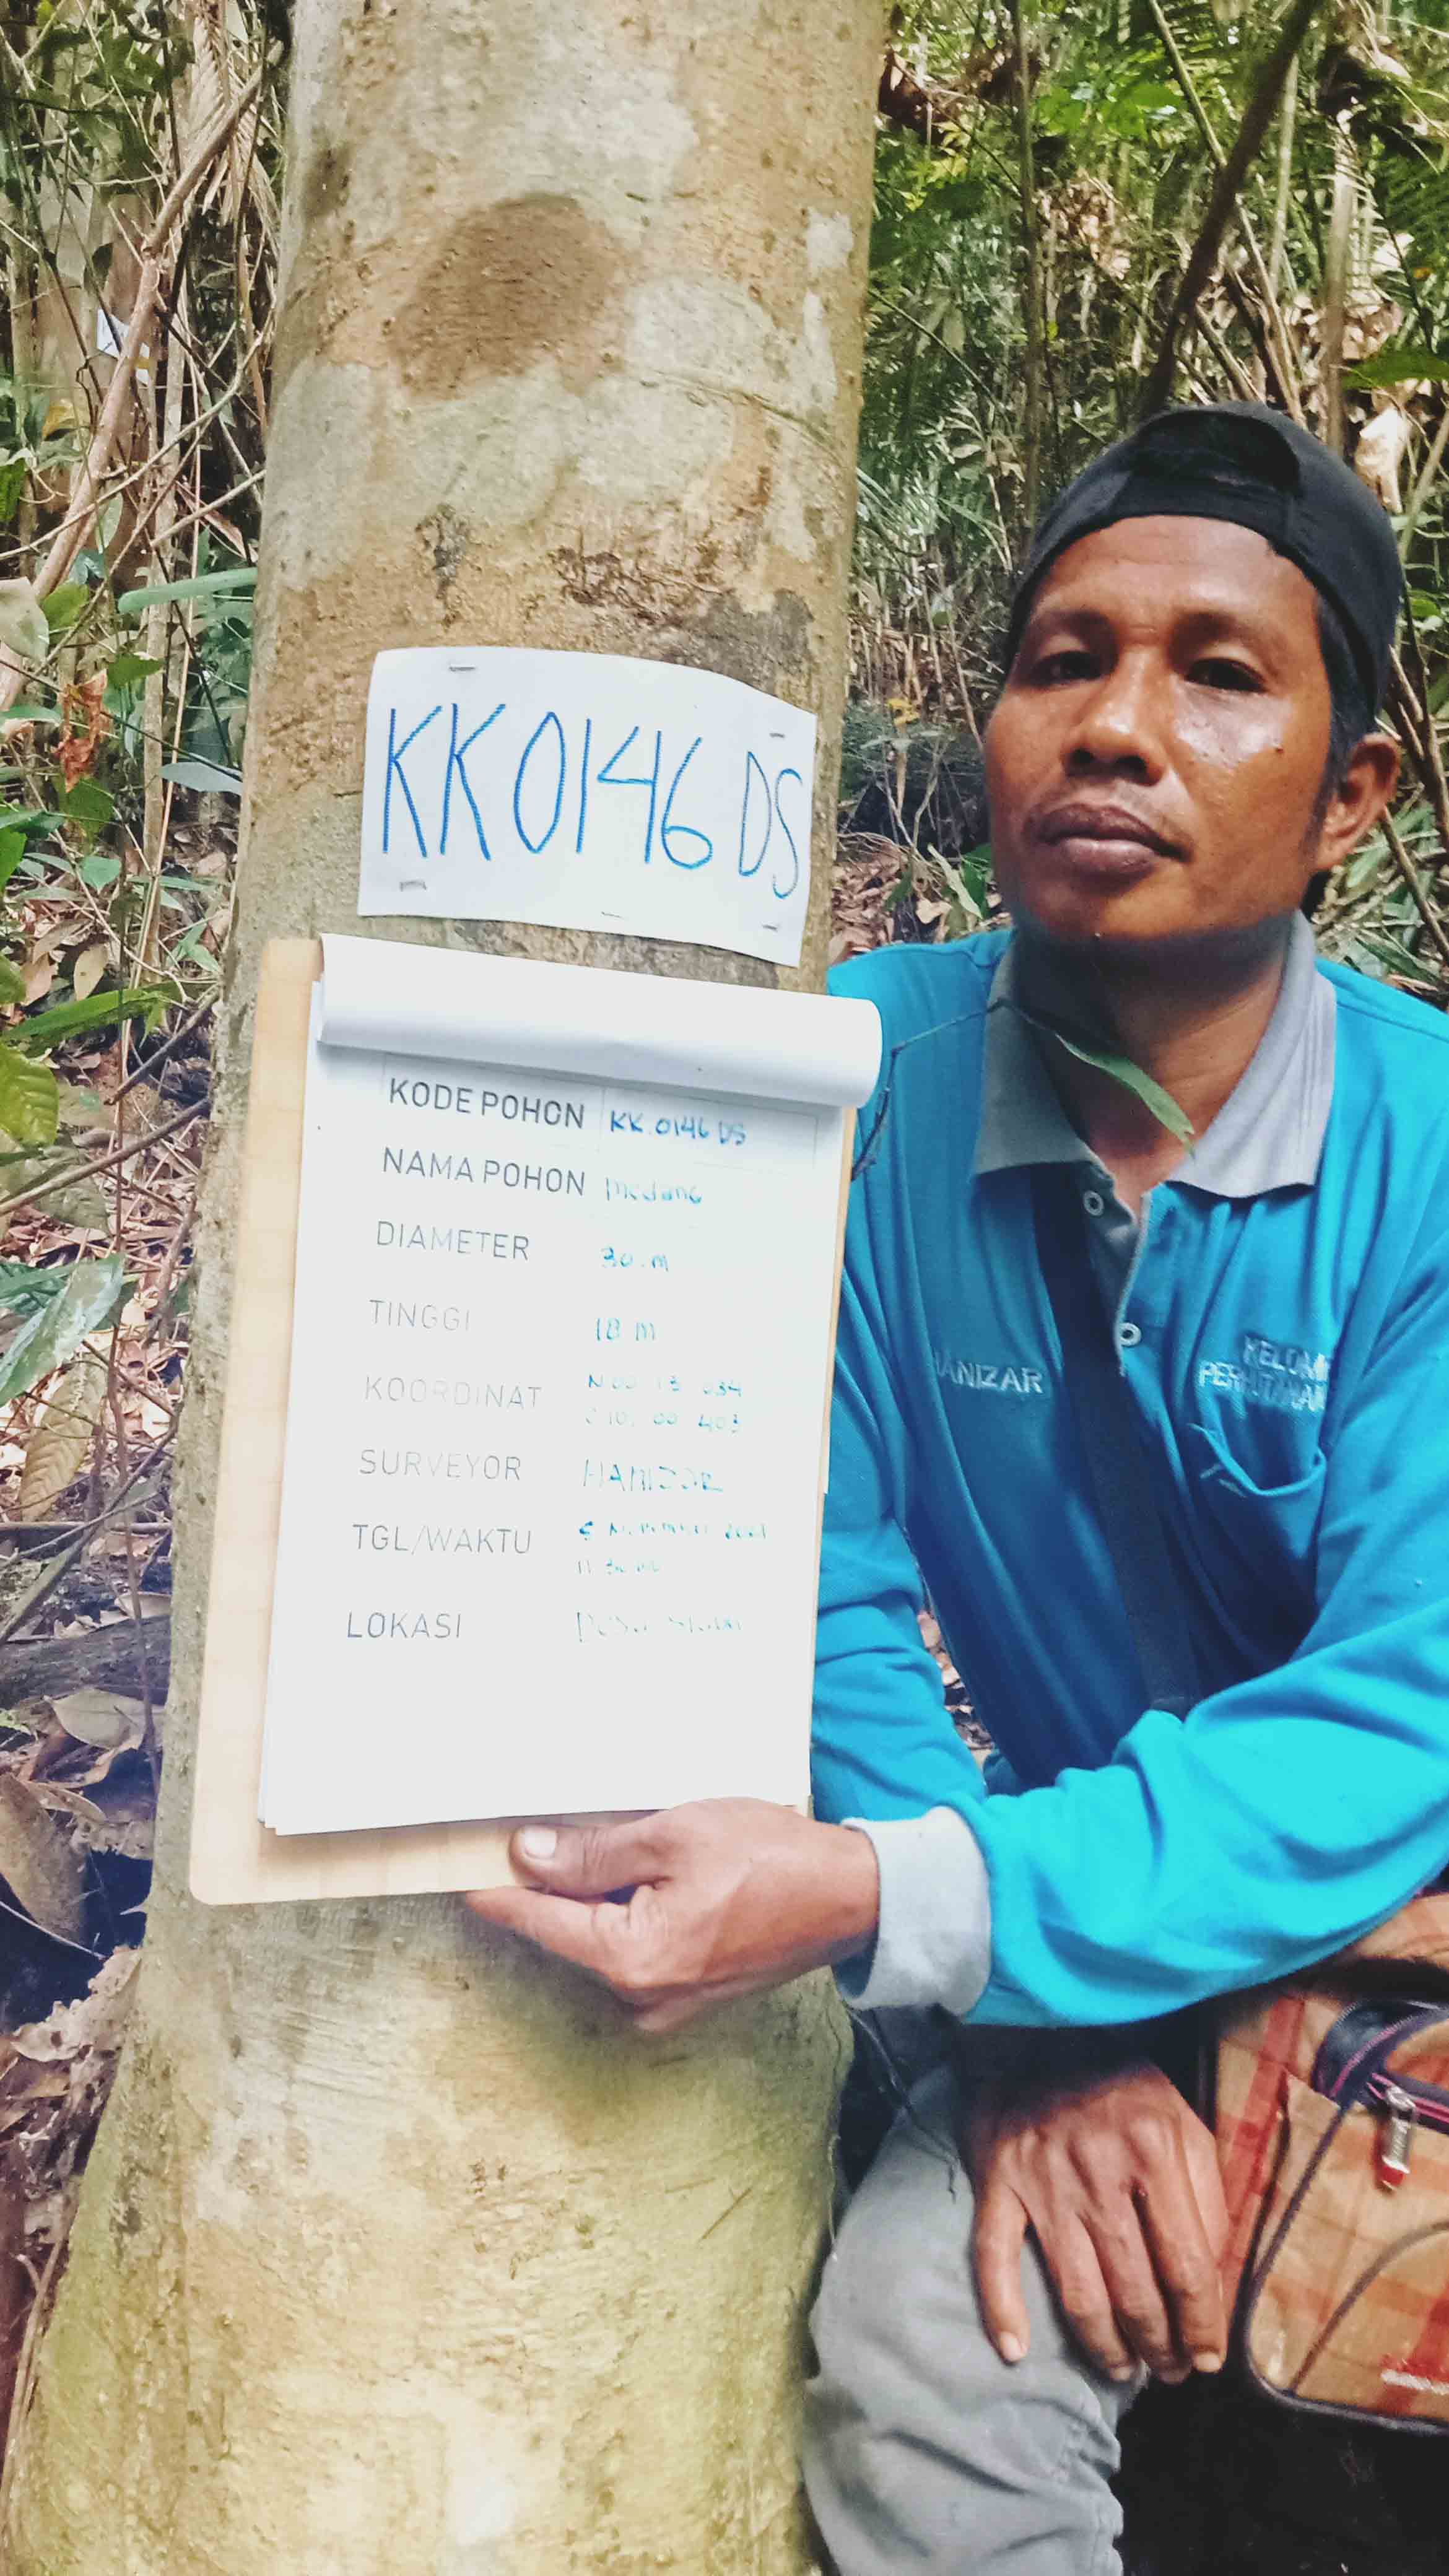 KK0146 DS
KODE POHON KK.0146 DS
NAMA POHON medang
DIAMETER 30.m
TINGGI 18 m
KOORDINAT N 00 13 034
00 403
SURVEYOR HANIZAR
TGL/WAKTU
LOKASI Desa
ANIZAR
KELOM
PERHUTANAN